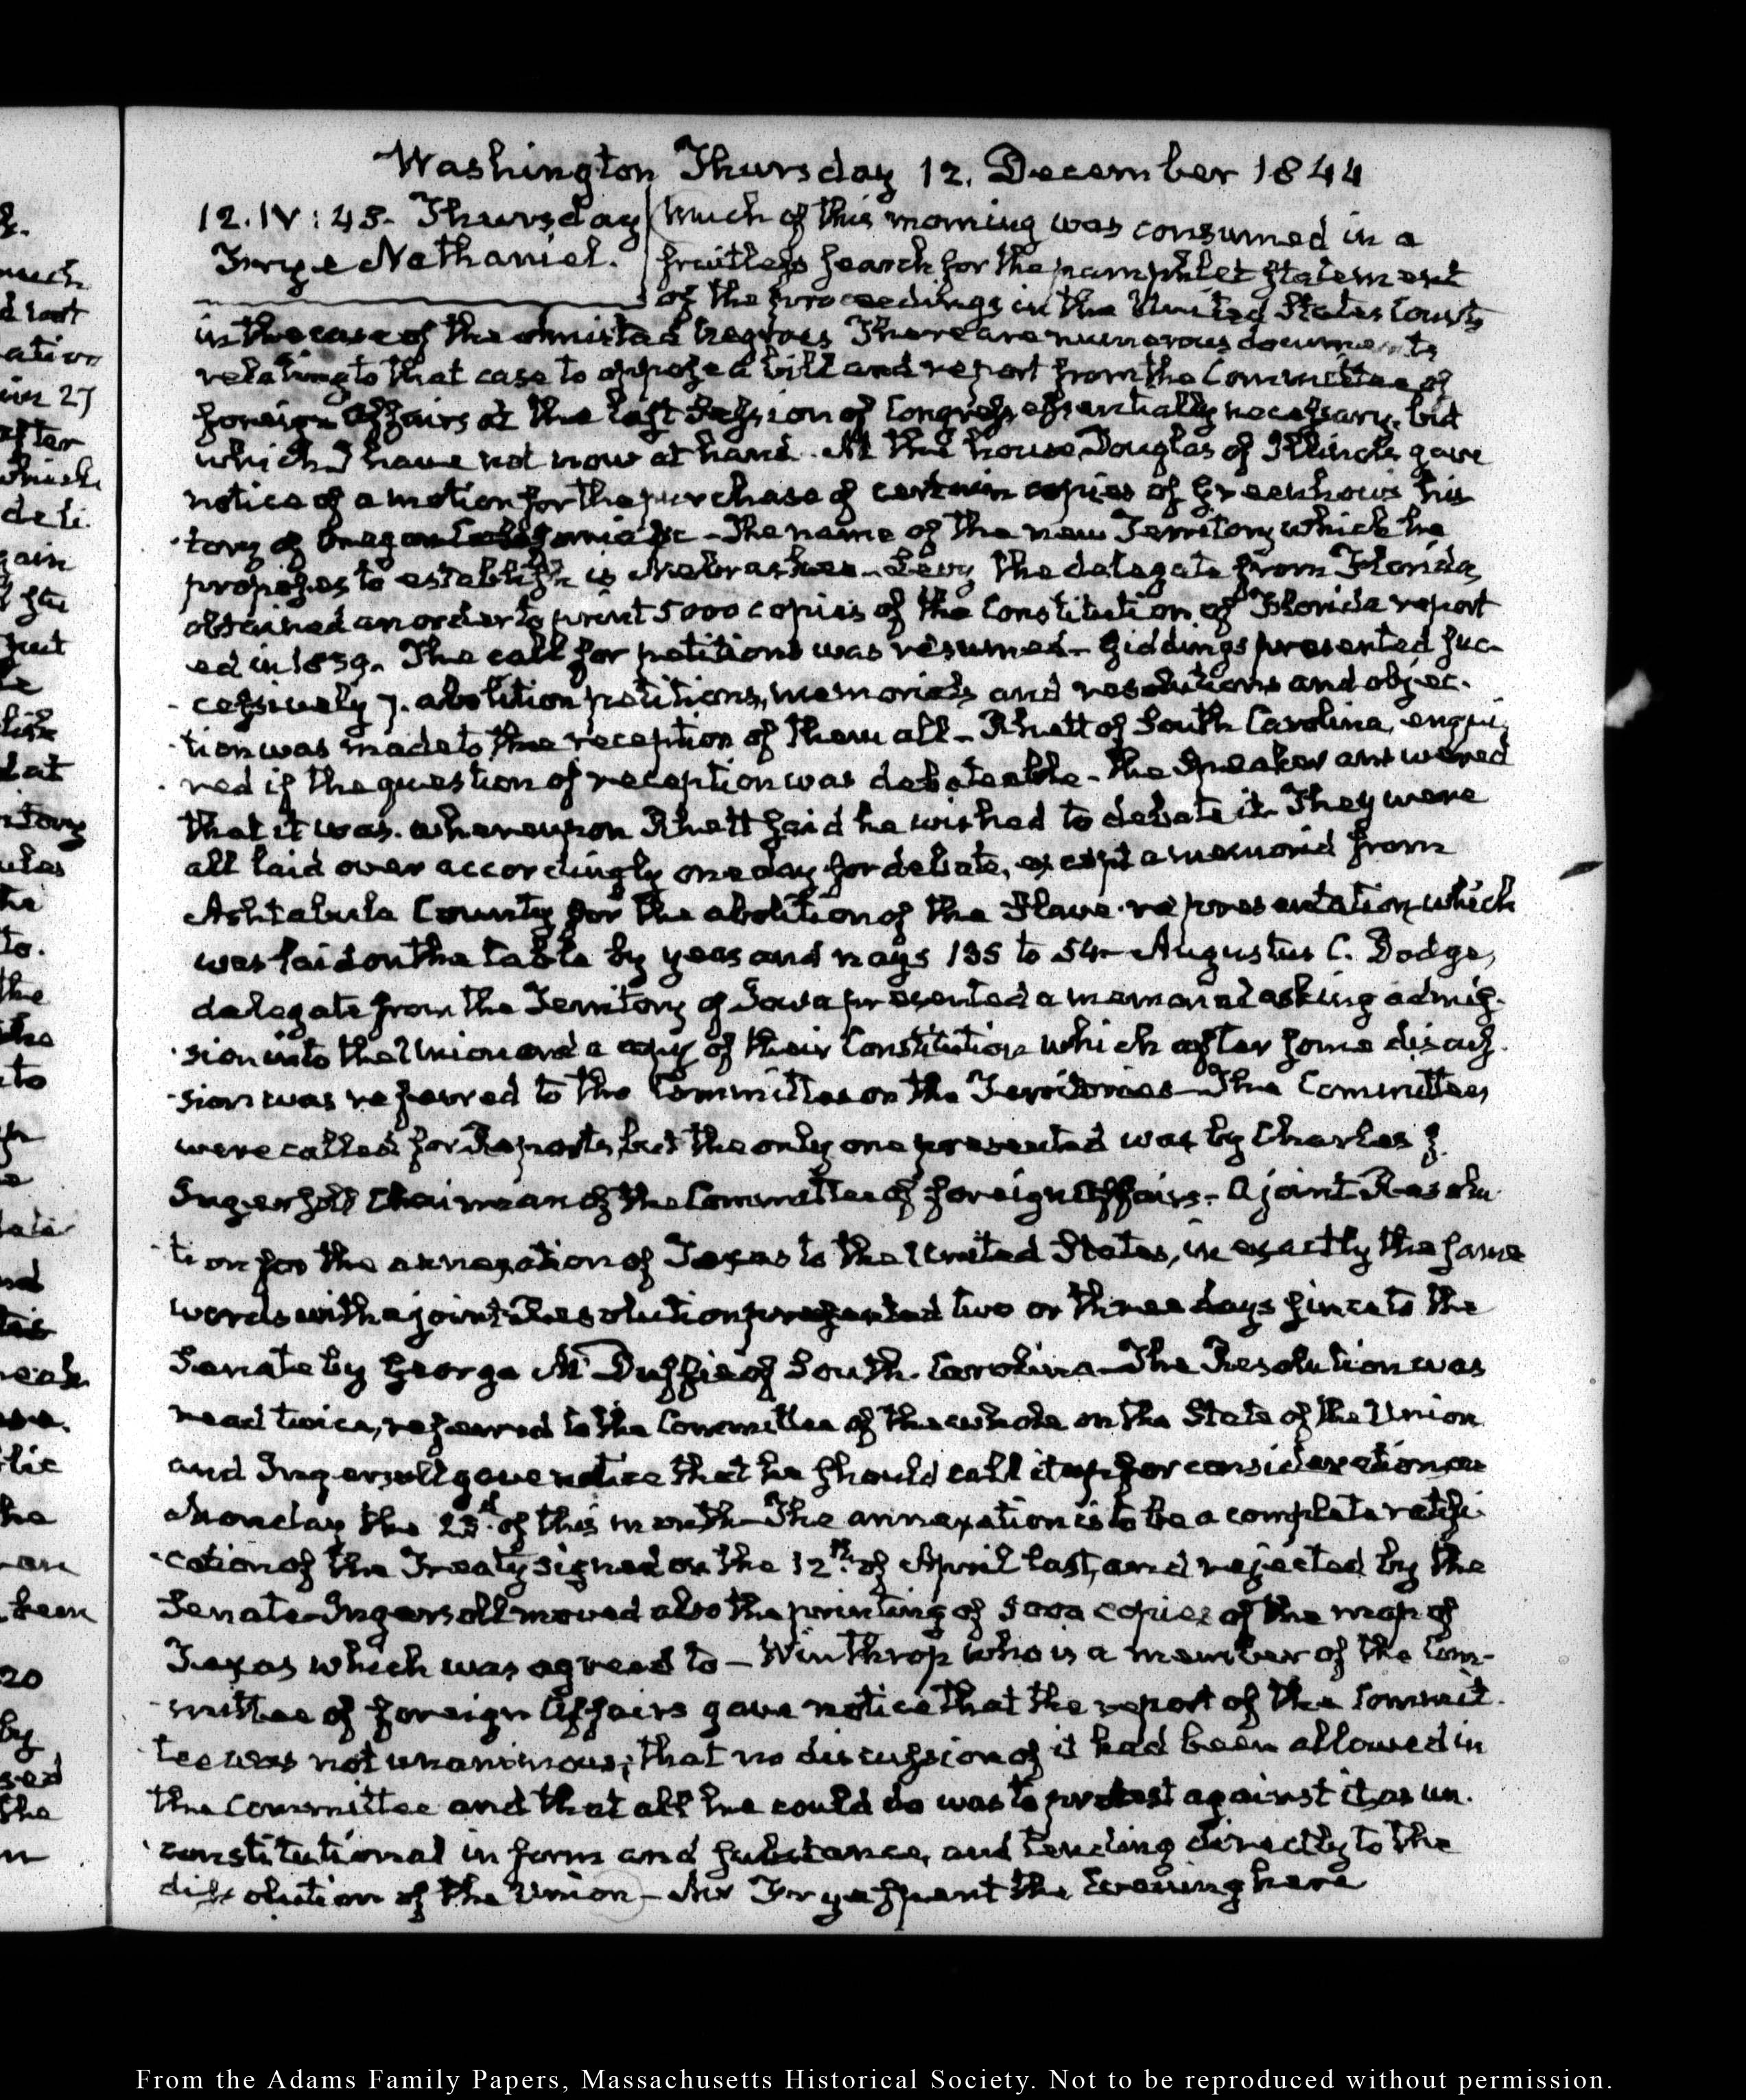 Washington Thursday 12. December 1844
12. IV: 45. Thursday
Frye Nathaniel.
Much of this morning was consumed in a
fruitless search for the pamphlet statement
of the proceedings in the United States Courts
in the case of the Amistad negroes There are numerous documents
relating to that case to oppose a bill and report from the Committee of
foreign Affairs at the last Session of Congress essentially necessary, but
which I have not now at hand. At the house Douglas of Illinois gave
notice of a motion for the purchase of certain copies of Greenhow's his
tory of Oregon California &c - The name of the new Territory which he
proposes to establish is Nebraska - Levy the delegate from Florida,
obtained an order to print 5000 copies of the Constitution of Florida report
ed in 1839. The call for petitions was resumed - Giddings presented suc-
cessively 7. abolition petitions, memorials and resolutions and objec-
tion was made to the reception of them all - Rhett of South Carolina, enqui
red if the question of reception was debateable - the Speaker answered
that it was. whereupon Rhett said he wished to debate it. They were
all laid over accordingly one day for debate, except a memorial from
Ashtabula County for the abolition of the Slave representation which
was laid on the table by yeas and nays 135 to 54 - Augustus C. Dodge,
delegate from the Territory of Iowa presented a memorial asking admis-
sion into the Union and a copy of their Constitution which after some discus-
sion was referred to the Committee on the Territories - The Committees
were called for Reports, but the only one presented was by Charles J.
Ingersoll Chairman of the Committee of foreign Affairs - A joint Resolu
tion for the annexation of Texas to the United States, in exactly the same
words with a joint Resolution presented two or three days since to the
Senate by George McDuffie of South-Carolina - The Resolution was
read twice, referred to the Committee of the whole on the State of the Union
and Ingersoll gave notice that he should call it up for consideration on
Monday the 23d. of this month - The annexation is to be a complete ratifi-
cation of the Treaty signed on the 12th. of April last, and rejected by the
Senate - Ingersoll moved also the printing of 5000 copies of the map of
Texas which was agreed to - Winthrop who is a member of the Com-
mittee of foreign Affairs gave notice that the report of the Commit-
tee was not unanimous; that no discussion of it had been allowed in
the Committee and that all he could do was to protest against it as un-
constitutional in form and substance, and tending directly to the
dissolution of the Union - Mr Frye spent the Evening here
From the Adams Family Papers, Massachusetts Historical Society. Not to be reproduced without permission.